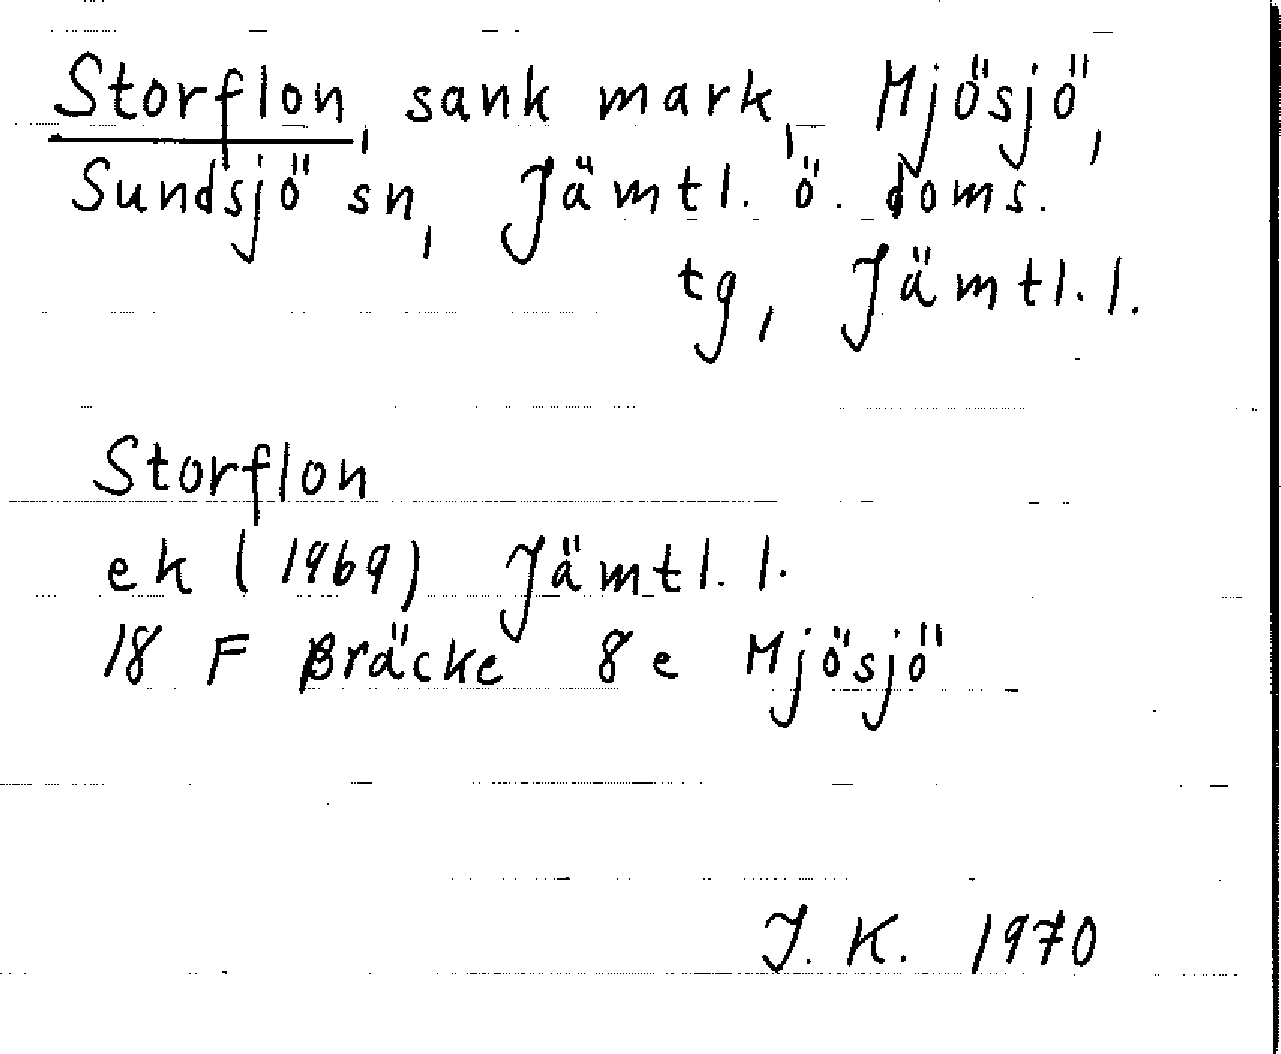 Storflon, sank mark, Mjösjö,
Sundsjö sn, Jämtl. ö. doms.
tg, Jämtl. l.
Storflon
ek (1969) Jämtl. l.
18 F Bräcke 8 e Mjösjö
J. K. 1970